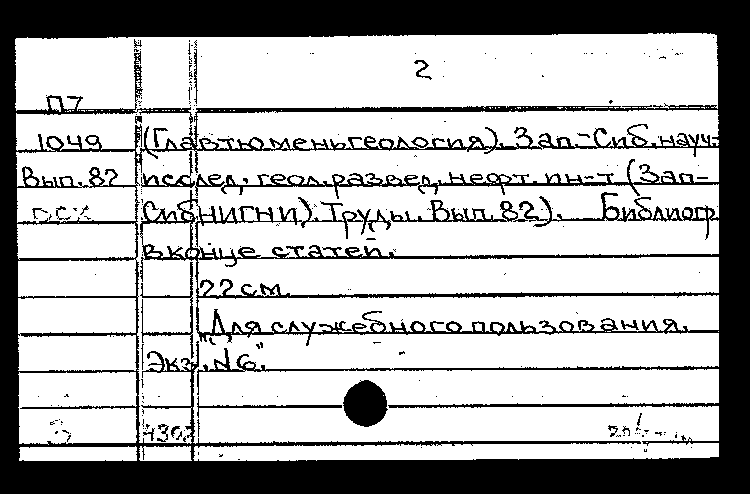 2
П7
1049 (Главтюменьгеология). Зап.-Сиб. науч-
Вып. 82 исслед. геол. развед. нефт. ин-т (Зап-
СибНИГНИ). Труды. Вып. 82). Библиогр
в конце статей.
22 см.
„Для служебного пользования.
Экз. №6."
3